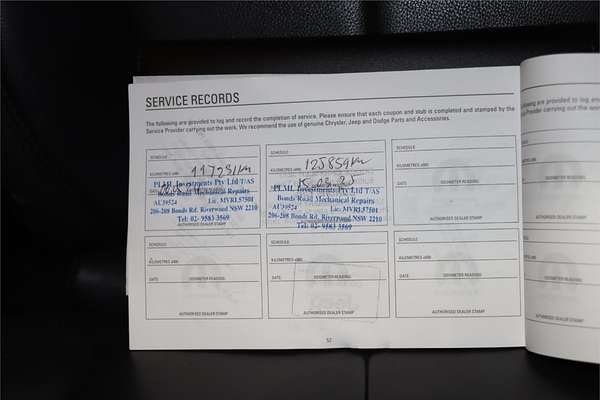 SERVICE RECORDS
The following are provided to log and record the completion of service. Please ensure that each coupon and stub is completed and stamped by the
Service Provider carrying out the work. We recommend the use of genuine Chrysler, Jeep and Dodge Parts and Accessories.
SCHEDULE
KILOMETRES (KM) 117231km
DATE:
PLML Investments Pty Ltd T/AS
Bonds Road Mechanical Repairs
AU39524 Lic. MVRL57501
206-208 Bonds Rd, Riverwood NSW 2210
Tel: 02- 9583 3569
AUTHORISED DEALER STAMP
SCHEDULE
KILOMETRES (KM) 125859km
PLML Investments Pty Ltd T/AS
Bonds Road Mechanical Repairs
AU39524 Lic. MVRL57501
206-208 Bonds Rd, Riverwood NSW 2210
Tel: 02- 9583 3569
SCHEDULE
KILOMETRES (KM)
DATE: ODOMETER READING:
AUTHORISED DEALER STAMP
SCHEDULE
KILOMETRES (KM)
DATE: ODOMETER READING:
AUTHORISED DEALER STAMP
SCHEDULE
KILOMETRES (KM)
DATE: ODOMETER READING:
AUTHORISED DEALER STAMP
SCHEDULE
KILOMETRES (KM)
DATE: ODOMETER READING:
AUTHORISED DEALER STAMP
52
are provided to log and
Provider carrying out the work.